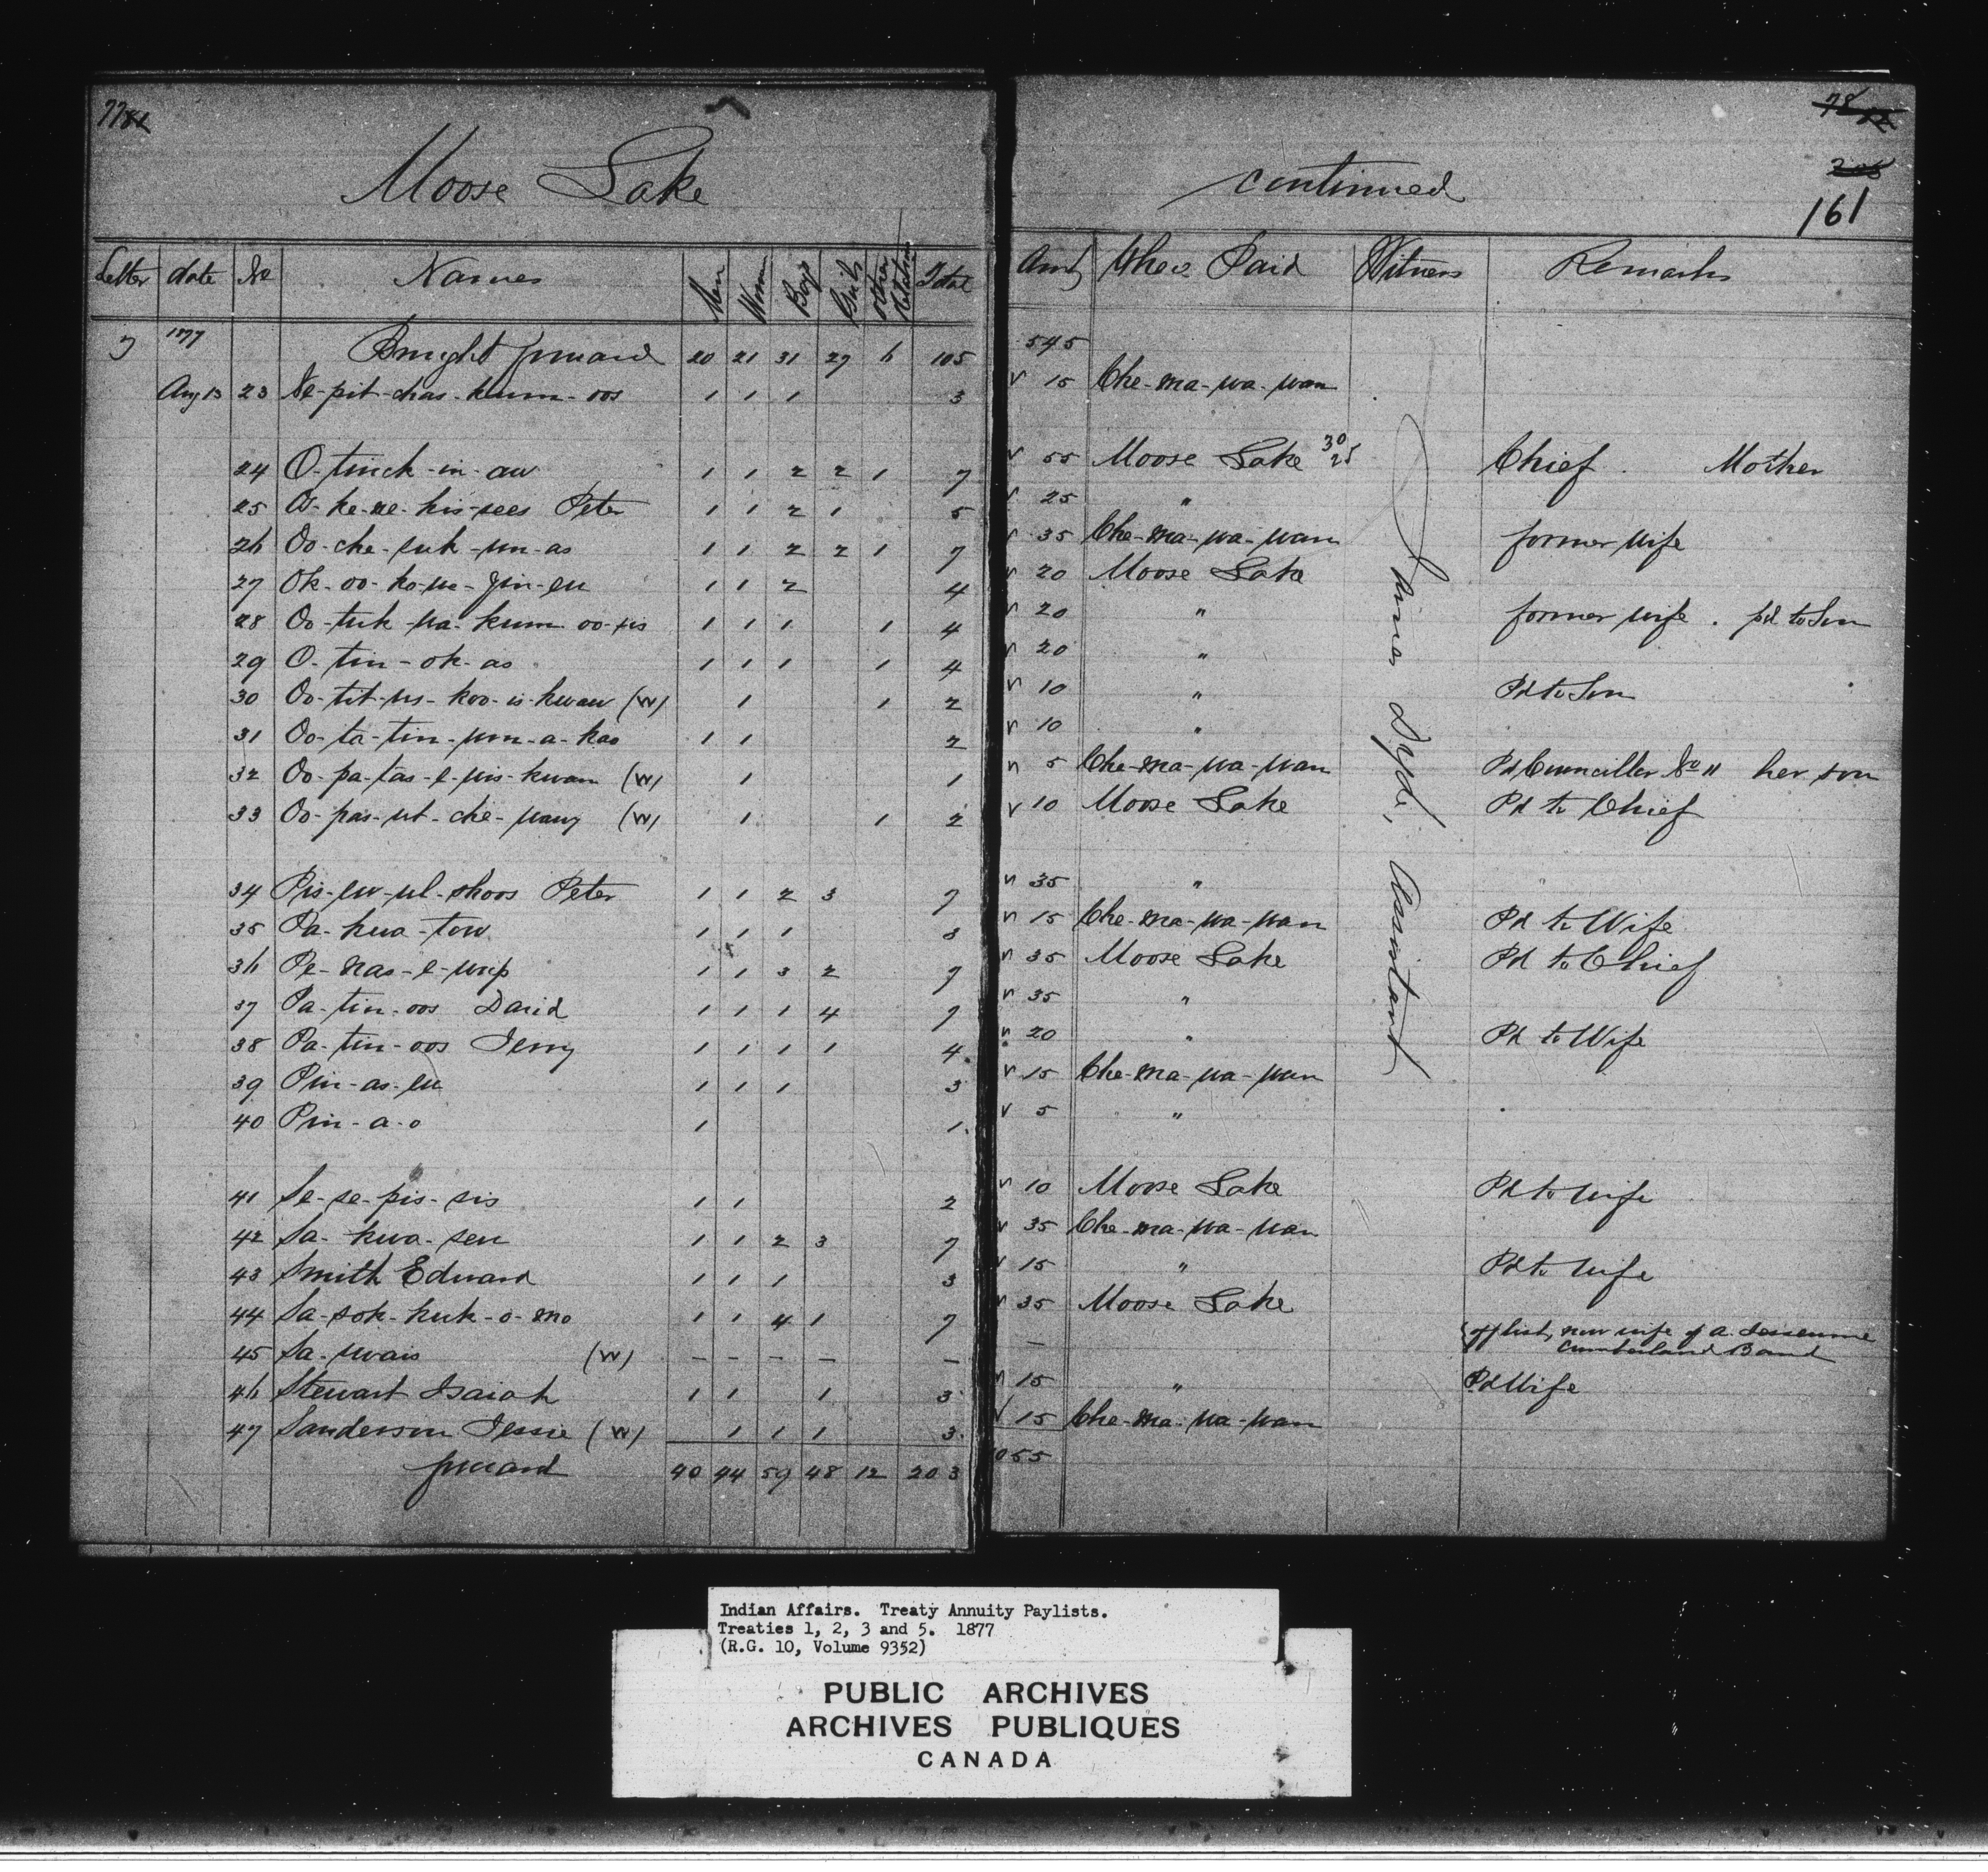 77 81
Moose Lake continued
78 82
161
Letter date No Names Men Women Boys Girls other Relatives Total Amt Where Paid Witness Remarks
J 1877 Brought forward 20 21 31 27 6 105 545
Aug 13 23 Ne-pit-chas-kum-oos 1 1 1 3 15 Che-ma-wa-wan
24 O-tinck-in-aw 1 1 2 2 1 7 55 Moose Lake 30 25 Chief. Mother
25 O-ke-ne-kis-sees Peter 1 1 2 1 5 25 "
26 Oo-che-suk-un-as 1 1 2 2 1 7 35 Che-ma-wa-wan former wife
27 Ok-oo-ko-we-yin-ew 1 1 2 4 20 Moose Lake
28 Oo-tuk-wa-kum-oo-wis 1 1 1 1 4 20 " former wife. pd to Son
29 O-tin-ok-as 1 1 1 1 4 20 "
30 Oo-tit-us-koo-is-kwaw (W) 1 1 2 10 " Pd to Son
31 Oo-ta-tin-um-a-kao 1 1 2 10 "
32 Oo-pa-tas-e-wis-kwam (W) 1 1 5 Che-ma-wa-wan Pd Councillor No 11 her son
33 Oo-pas-ut-che-wang (W) 1 1 2 10 Moose Lake Pd to Chief
34 Pis-ew-ul-shoos Peter 1 1 2 3 7 35 "
35 Pa-kwa-tow 1 1 1 3 15 Che-ma-wa-wan Pd to Wife
36 Pe-nas-e-wip 1 1 3 2 7 35 Moose Lake Pd to Chief
37 Pa-tin-oos David 1 1 1 4 7 35 "
38 Pa-tin-oos Jerry 1 1 1 1 4 20 " Pd to Wife
39 Pin-as-ew 1 1 1 3 15 Che-ma-wa-wan
40 Pin-a-o 1 1 5 "
41 Se-se-pis-sis 1 1 2 10 Moose Lake Pd to wife
42 Sa-kwa-sew 1 1 2 3 7 35 Che-ma-wa-wan
43 Smith Edward 1 1 1 3 15 " Pd to wife
44 Sa-sok-kuk-o-mo 1 1 4 1 7 35 Moose Lake
45 Sa-wais (W) - - - - - - off list, now wife of A.
Cumberland Band
46 Stewart Isaiah 1 1 1 3 15 " Pd Wife
47 Sanderson Jessie (W) 1 1 1 3 15 Che-ma-wa-wan
forward 40 44 59 48 12 203 1055
James Dyke, Assistant
Indian Affairs. Treaty Annuity Paylists.
Treaties 1, 2, 3 and 5. 1877
(R.G. 10, Volume 9352)
PUBLIC ARCHIVES
ARCHIVES PUBLIQUES
CANADA